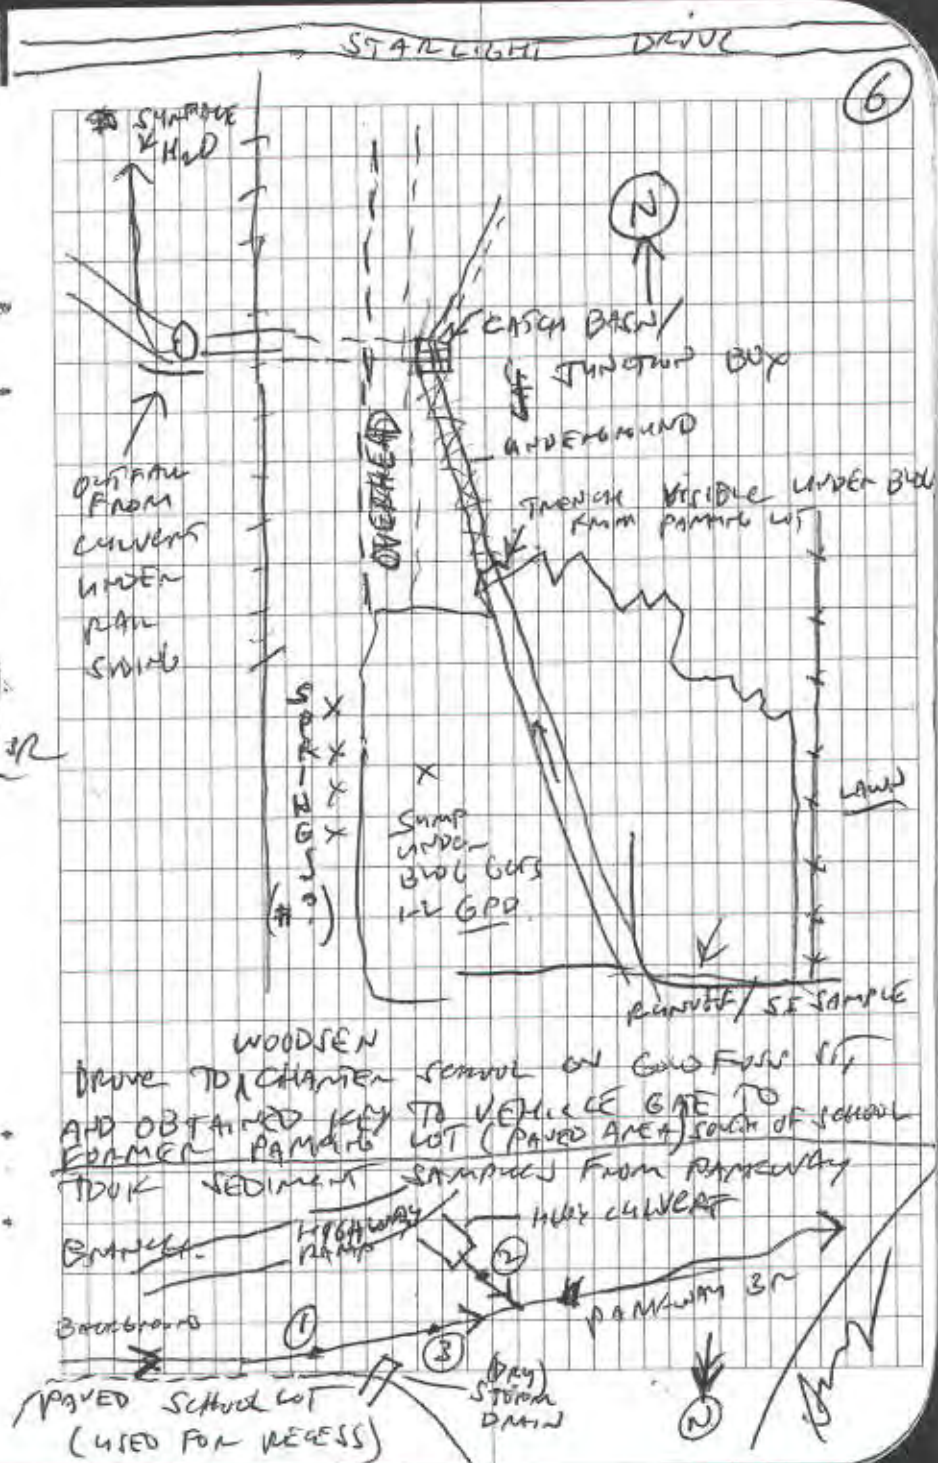 STARLIGHT DRIVE
6
SAMPLE
H2O
N
CATCH BASIN/
JUNCTION BOX
UNDERGROUND
OVERHEAD
OUTFALL
FROM
CULVERT
UNDER
RAIL
SIDING
TRENCH VISIBLE UNDER BLDG
FROM PARKING LOT
SPRINGS
X
X
X
X
X
SUMP
UNDER
BLDG GETS
1-2 GPD
LAWN
RUNOFF/
SAMPLE
WOODSEN
DROVE TO CHARTER SCHOOL ON GOLDFUSS ST,
AND OBTAINED KEY TO VEHICLE GATE TO
FORMER PARKING LOT (PAVED AREA) SOUTH OF SCHOOL
TOOK SEDIMENT SAMPLES FROM PARKWAY
BRANCH.
HIGHWAY
RAMP
HWY CULVERT
2
PARKWAY BR
BACKGROUND
1
3
(DRY)
STORM
DRAIN
PAVED SCHOOL LOT
(USED FOR RECESS)
N